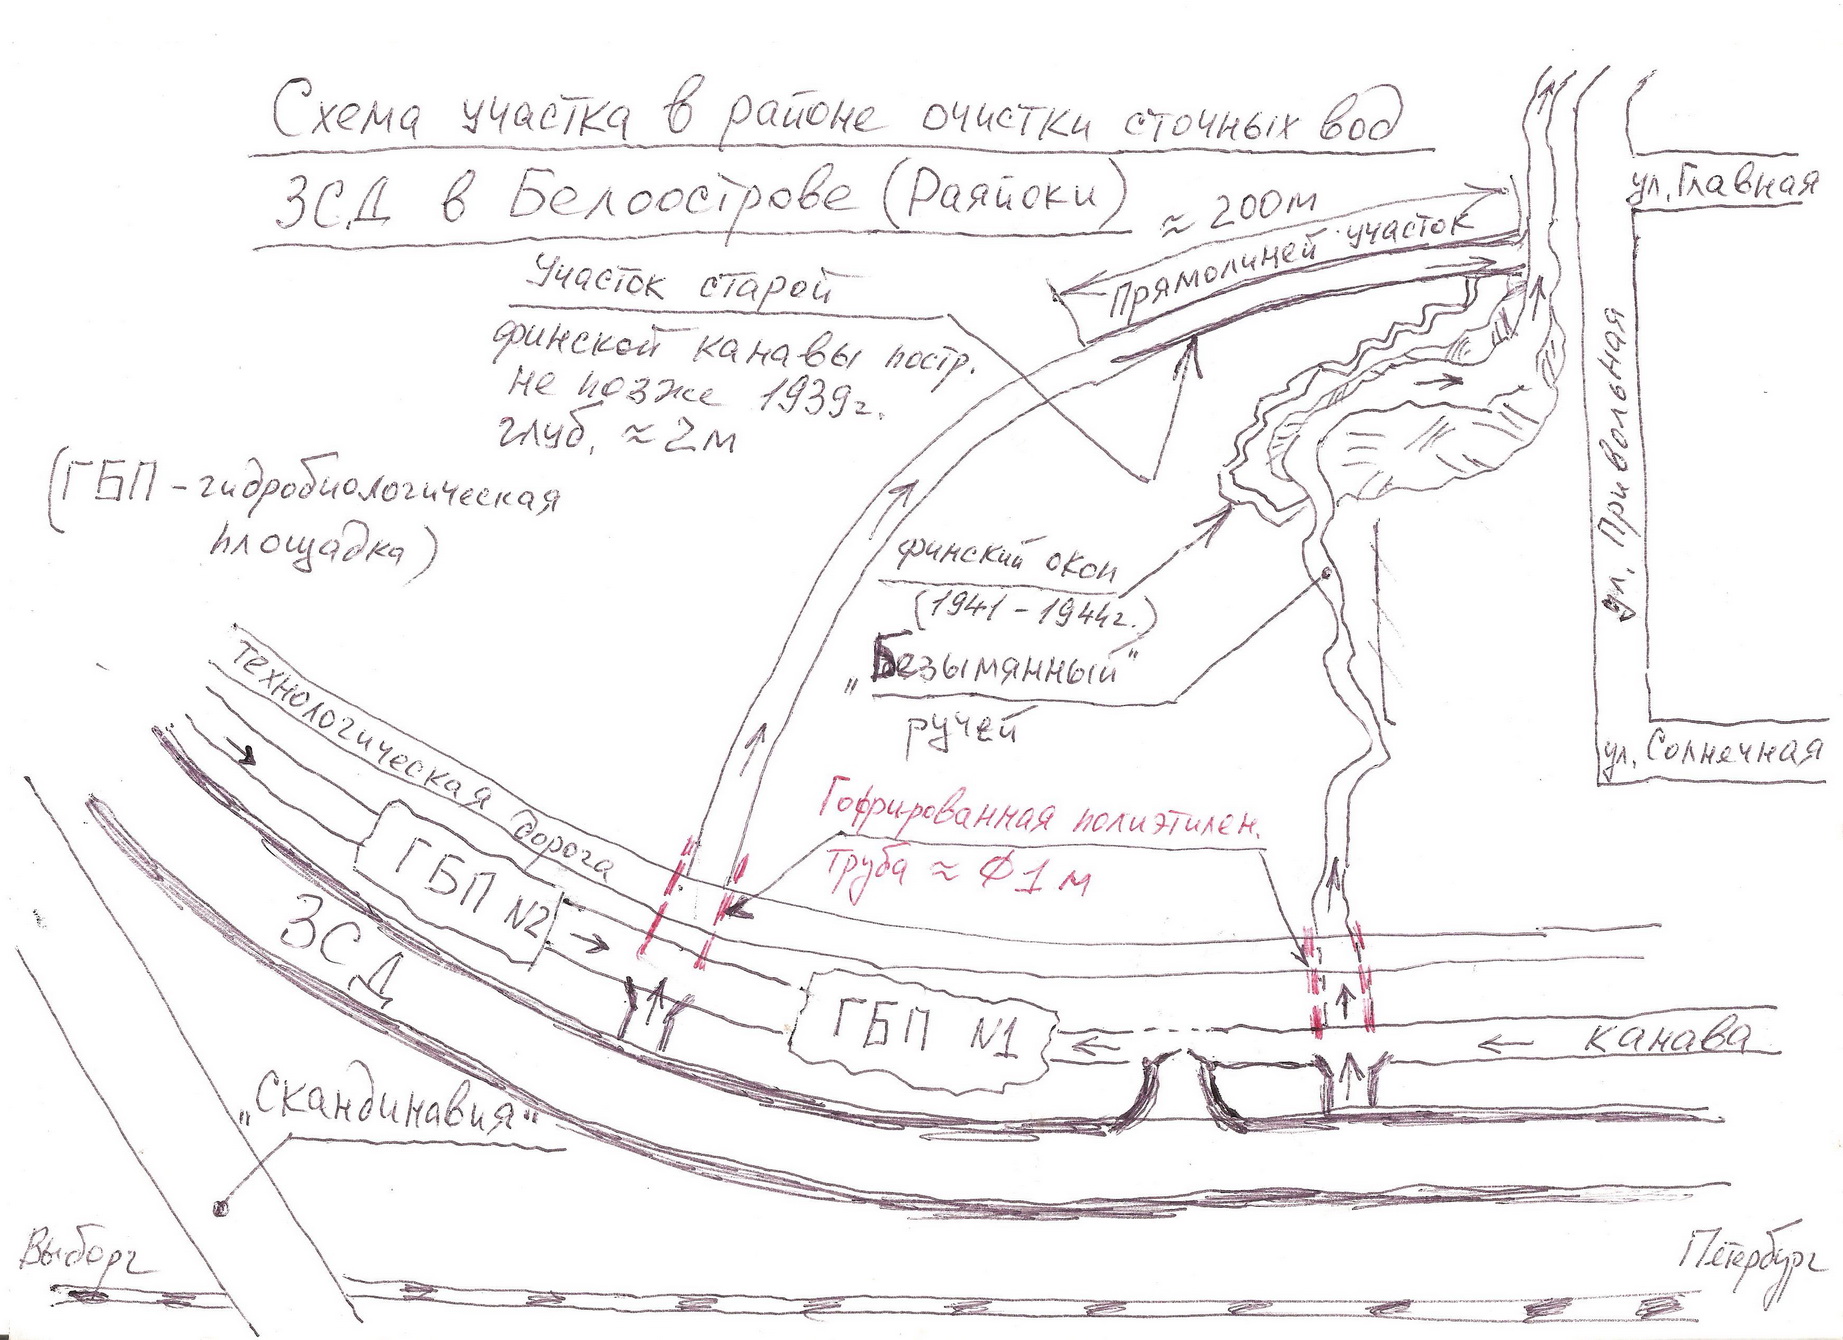 Схема участка в районе очистки сточных вод
ЗСД в Белоострове (Раяйоки)
≈ 200м
Прямолиней участок
ул. Главная
Участок старой
финской канавы постр.
не позже 1939г.
глуб. ≈ 2м
(ГБП - гидробиологическая
площадка)
ул. Привольная
финский окоп
(1941 - 1944г.)
"Безымянный"
ручей
ул. Солнечная
Технологическая дорога
Гофрированная полиэтилен.
труба ≈ Ф1м
ГБП N2
ЗСД
ГБП N1
канава
"Скандинавия"
Выборг
Петербург